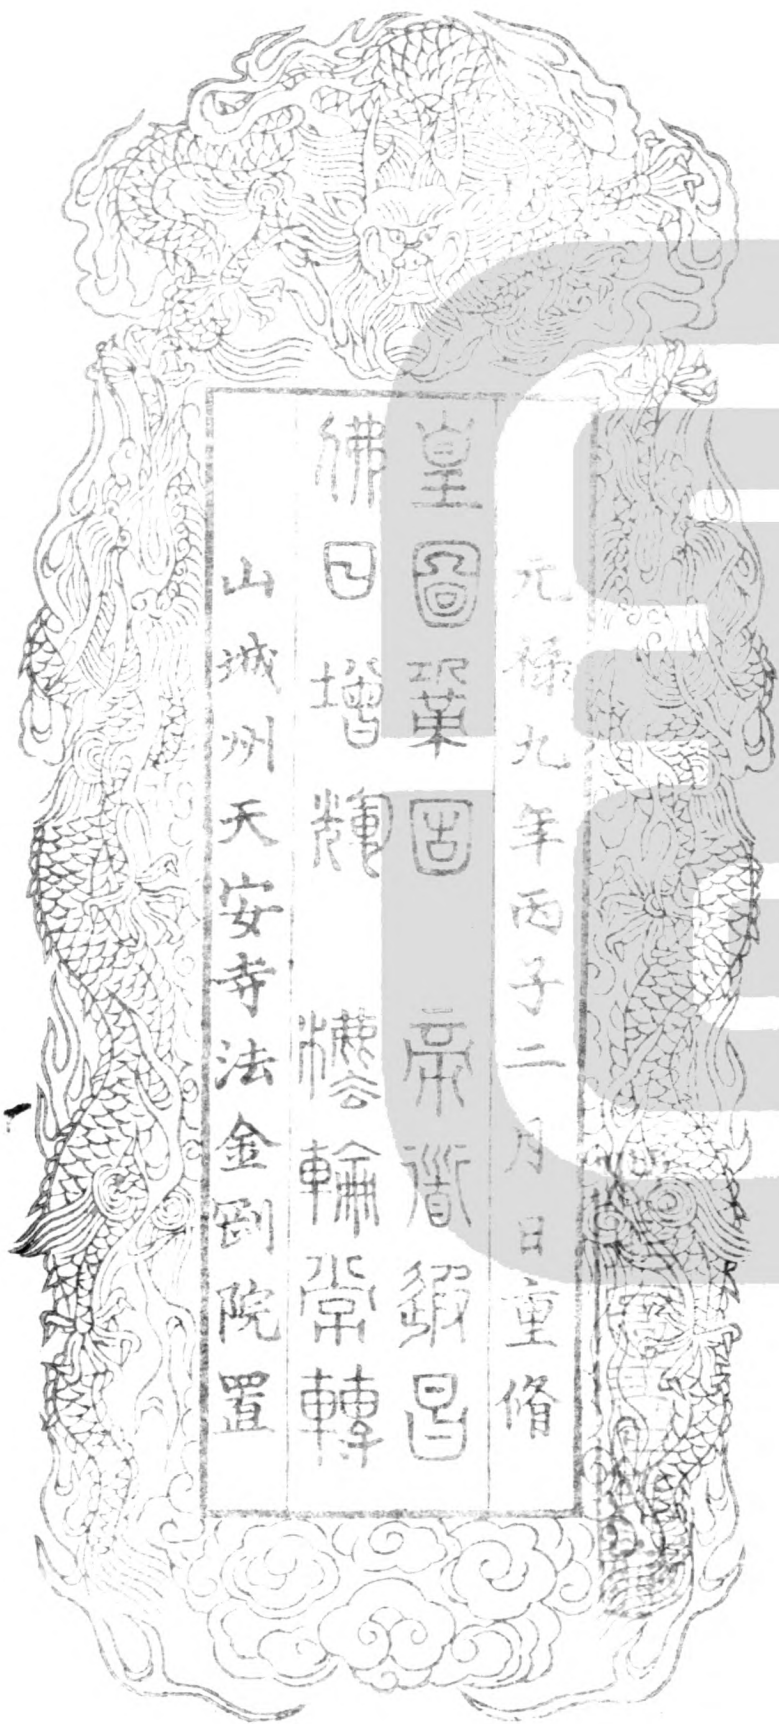 元祿九年丙子二月日重脩
皇圖鞏固帝道遐昌
佛日增輝法輪常轉
山城州天安寺法金剛院置